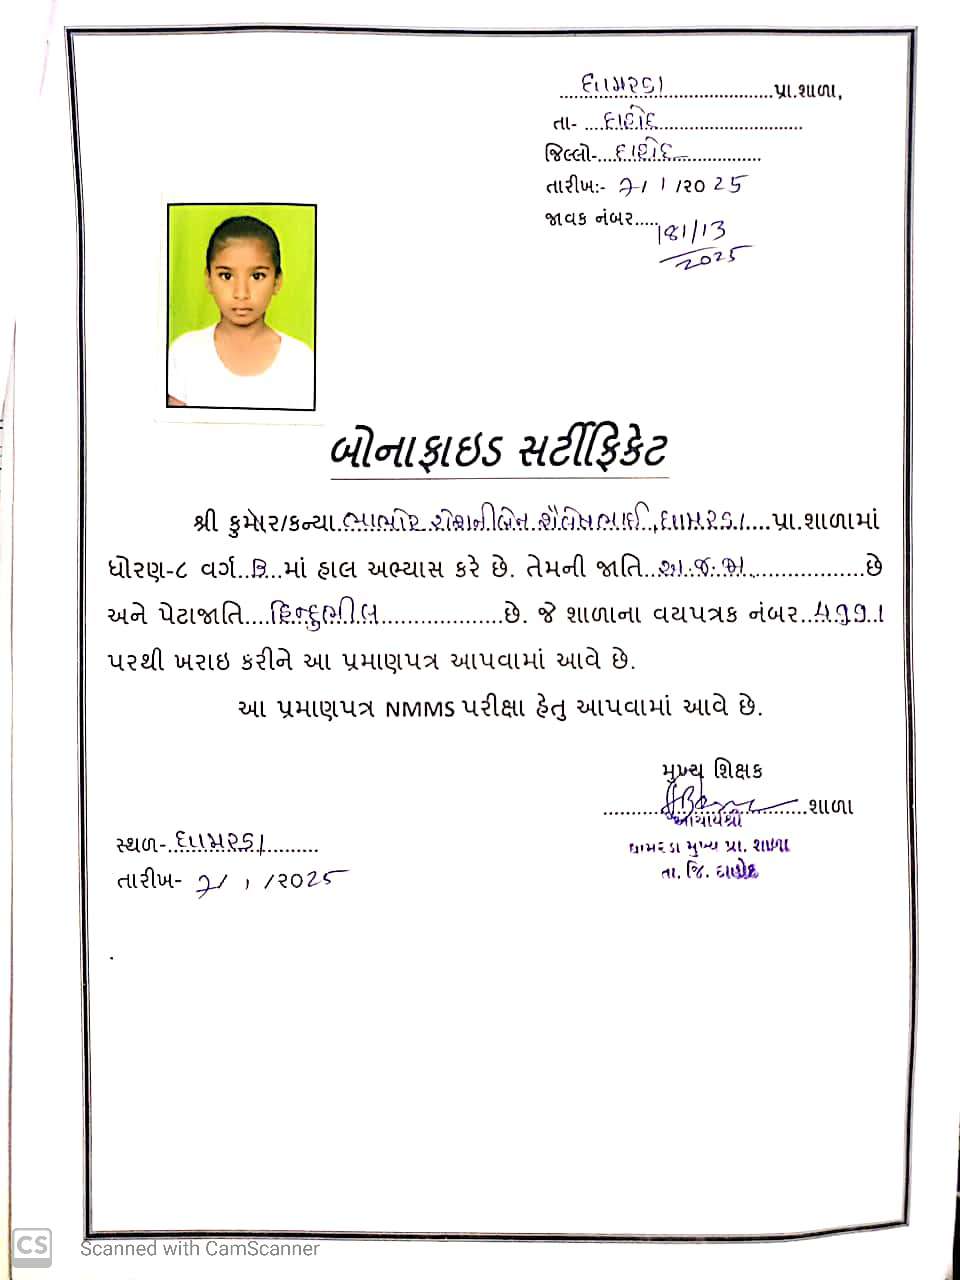 ધામરડા પ્રા.શાળા,
તા- દાહોદ
જિલ્લો- દાહોદ
તારીખ:- 7/1/૨૦25
જાવક નંબર..... 181/13
2025
બોનાફાઇડ સર્ટીફિકેટ
શ્રી કુમાર/કન્યા ભાભોર રોશનીબેન શૈલેષભાઈ, ધામરડા પ્રા.શાળામાં
ધોરણ-૮ વર્ગ.. માં હાલ અભ્યાસ કરે છે. તેમની જાતિ અ.જ.જા. છે
અને પેટાજાતિ હિન્દુભીલ છે. જે શાળાના વયપત્રક નંબર
પરથી ખરાઇ કરીને આ પ્રમાણપત્ર આપવામાં આવે છે.
આ પ્રમાણપત્ર NMMS પરીક્ષા હેતુ આપવામાં આવે છે.
મુખ્ય શિક્ષક
શાળા
આચાર્યશ્રી
ધામરડા મુખ્ય પ્રા. શાળા
તા. જિ. દાહોદ
સ્થળ- ધામરડા
તારીખ- 7/1/૨૦25
CS Scanned with CamScanner